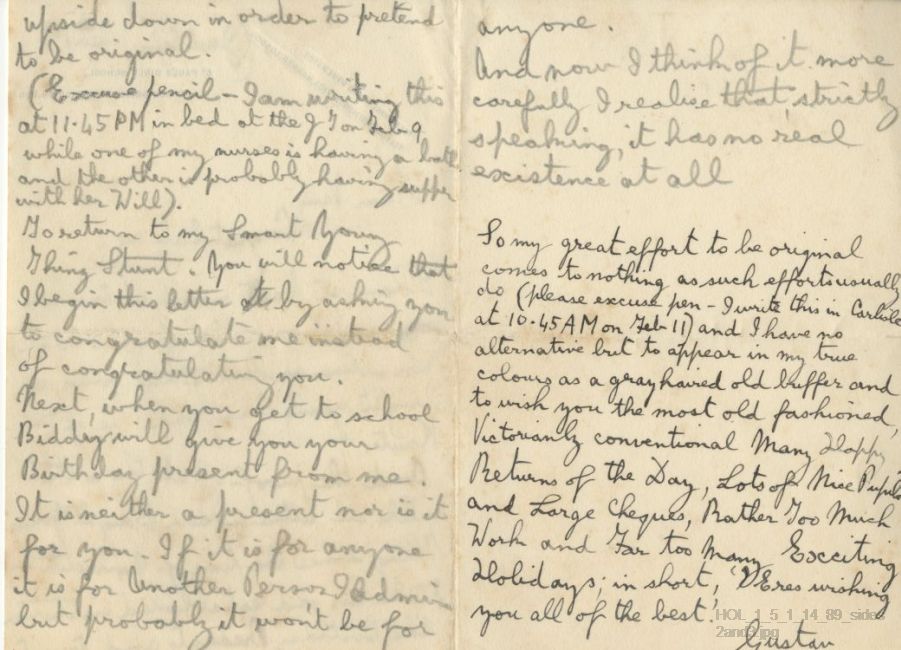 upside down in order to pretend
to be original.
(Excuse pencil – I am writing this
at 11.45 PM in bed at the J J on Feb 9,
while one of my nurses is having a bath
and the other is probably having supper
with her Will).
To return to my Smart Young
Thing Stunt. You will notice that
I begin this letter by asking you
to congratulate me instead
of congratulating you.
Next, when you get to school
Biddy will give you your
Birthday present from me.
It is neither a present nor is it
for you. If it is for anyone
it is for Another Person I admire
but probably it won't be for
anyone.
And now I think of it more
carefully I realise that strictly
speaking, it has no real
existence at all
So my great effort to be original
comes to nothing as such efforts usually
do (please excuse pen – I write this in Carlisle
at 10.45 AM on Feb 11) and I have no
alternative but to appear in my true
colours as a grayhaired old buffer and
to wish you the most old fashioned,
Victorianly conventional Many Happy
Returns of the Day, Lots of Nice Pupils
and Large Cheques, Rather Too Much
Work and Far too Many Exciting
Holidays; in short, 'Eres wishing
you all of the best'.
Gustav
HOL_1_5_1_14_89_sides
2and3.jpg